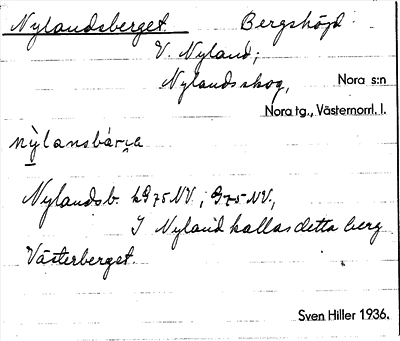 Nylandsberget Bergshöjd
V. Nyland;
Nylandsskog, Nora s:n
Nora tg., Västernorrl. l.
nỳlansbárja
Nylandsb. kG75NV; G75NV.,
I Nyland kallas detta berg
Västerberget.
Sven Hiller 1936.